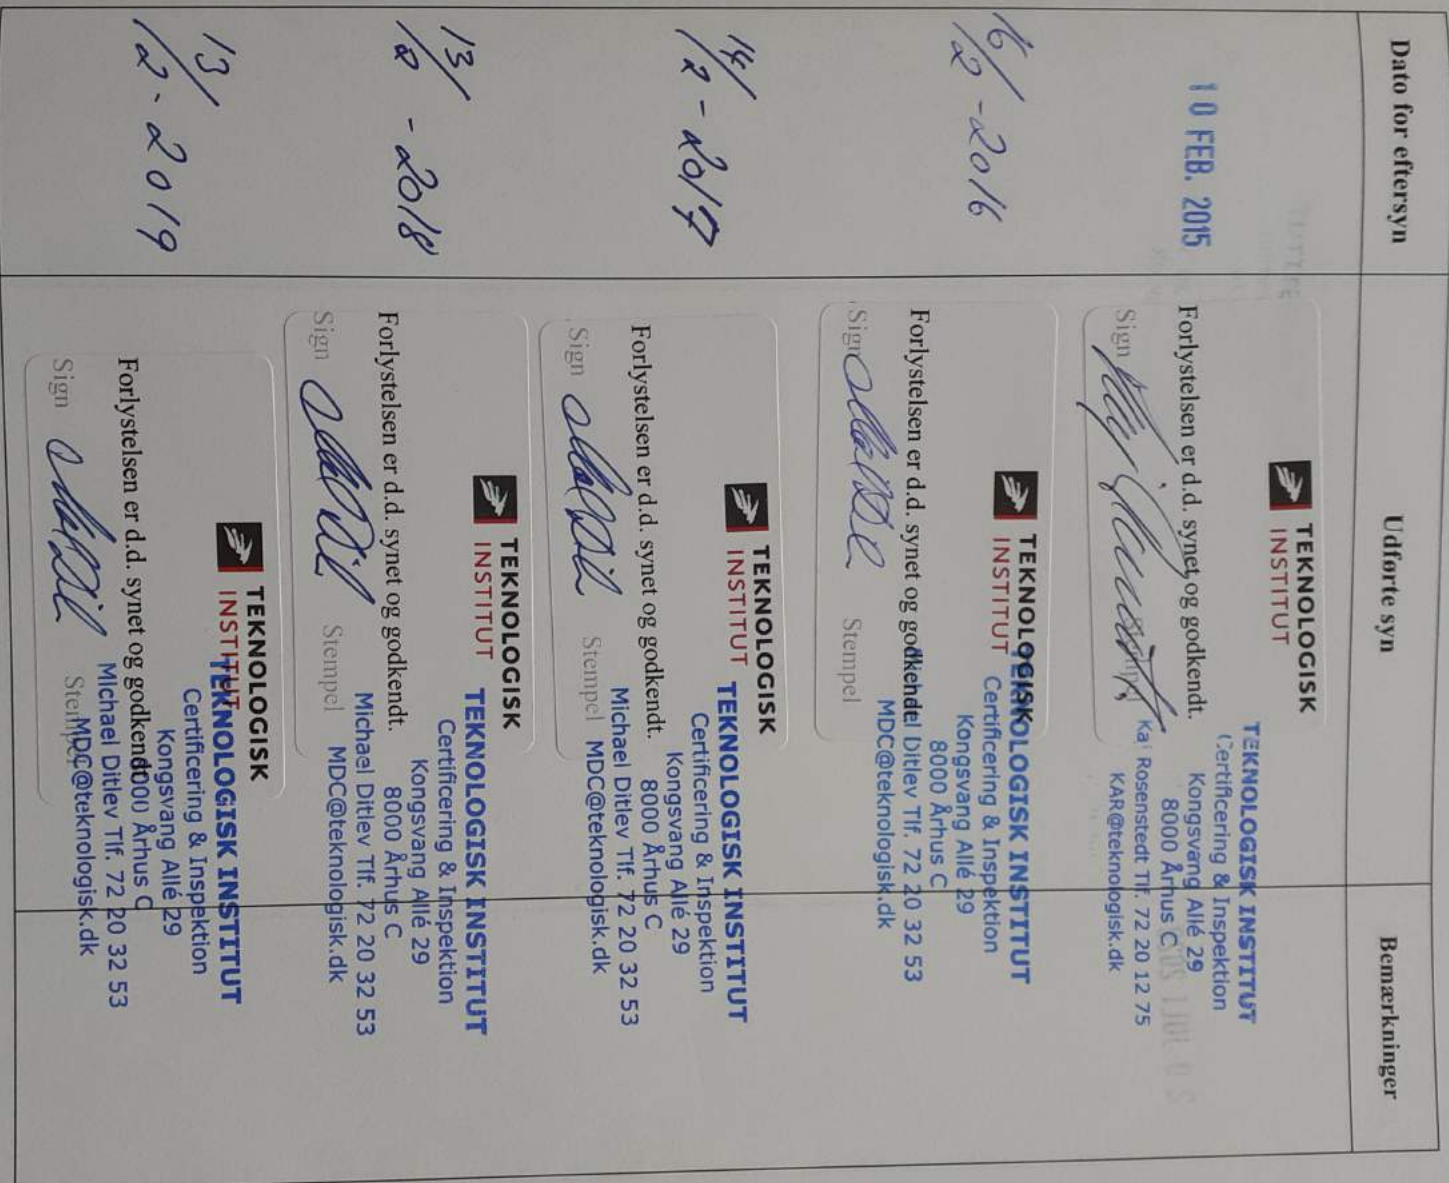 Dato for eftersyn
Udførte syn
Bemærkninger
10 FEB. 2015
TEKNOLOGISK
INSTITUT
Forlystelsen er d.d. synet og godkendt.
Sign
TEKNOLOGISK INSTITUT
Certificering & Inspektion
Kongsvang Allé 29
8000 Århus C
Kai Rosenstedt Tlf. 72 20 12 75
KAR@teknologisk.dk
16/2 - 2016
TEKNOLOGISK
INSTITUT
Forlystelsen er d.d. synet og godkendt.
Sign
Stempel
TEKNOLOGISK INSTITUT
Certificering & Inspektion
Kongsvang Allé 29
8000 Århus C
Ditlev Tlf. 72 20 32 53
MDC@teknologisk.dk
14/2 - 2017
TEKNOLOGISK
INSTITUT
Forlystelsen er d.d. synet og godkendt.
Sign
Stempel
TEKNOLOGISK INSTITUT
Certificering & Inspektion
Kongsvang Allé 29
8000 Århus C
Michael Ditlev Tlf. 72 20 32 53
MDC@teknologisk.dk
13/2 - 2018
TEKNOLOGISK
INSTITUT
Forlystelsen er d.d. synet og godkendt.
Sign
Stempel
TEKNOLOGISK INSTITUT
Certificering & Inspektion
Kongsvang Allé 29
8000 Århus C
Michael Ditlev Tlf. 72 20 32 53
MDC@teknologisk.dk
13/2 - 2019
TEKNOLOGISK
INSTITUT
Forlystelsen er d.d. synet og godkendt
Sign
Stempel
TEKNOLOGISK INSTITUT
Certificering & Inspektion
Kongsvang Allé 29
8000 Århus C
Michael Ditlev Tlf. 72 20 32 53
MDC@teknologisk.dk